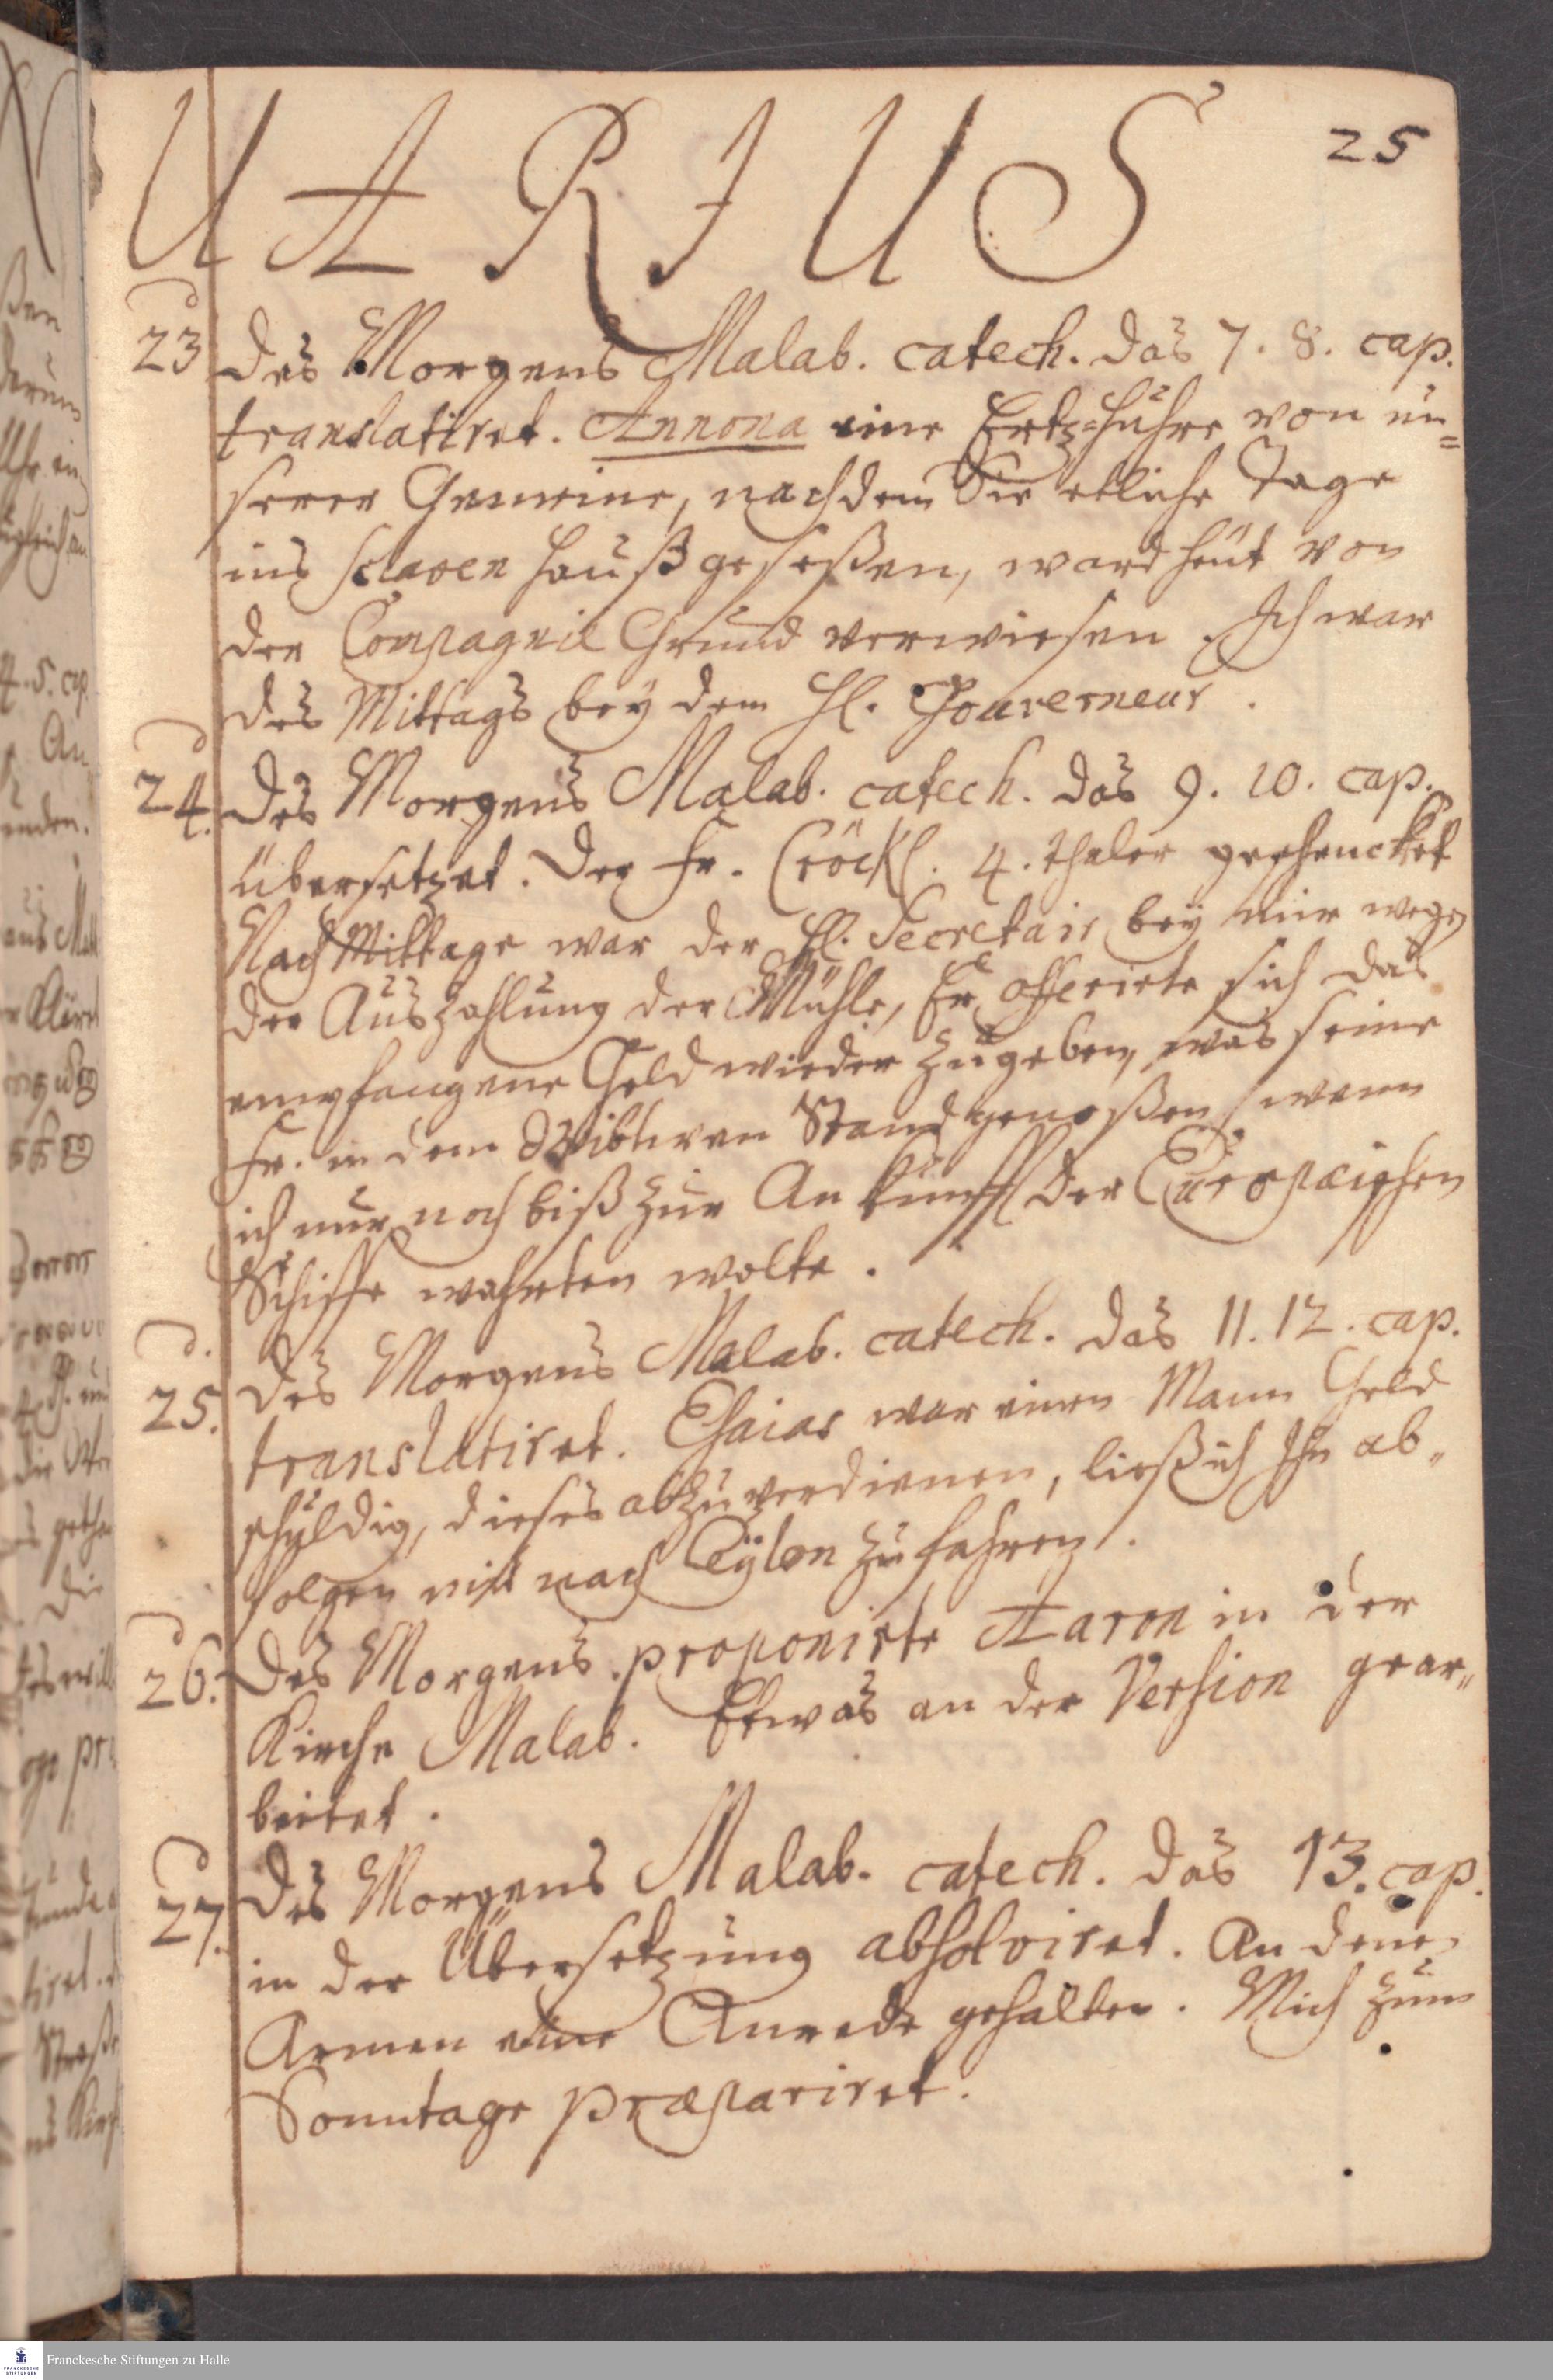 25
UARIUS
d
23 Des Morgens Malab. catech. das 7. 8. cap.
translatiret. Annona eine Ertz=Huhre von un=
serer Gemeine, nachdem Sie etliche Tage
ins sclaven Hauß geseßen, ward heut von
der Compagnie Grund verwiesen. Ich war
des Mittags bey dem H. Gouverneur.
d
24. Des Morgens Malab. catech. das 9. 10. cap.
übersetzet. Der Fr. Cröckl. 4. thaler geschencket
Nach Mittage war der H. Secretair bey mir wegen
der Auszahlung der Mühle, Er offerirte sich das
empfangene Geld wieder zugeben, was seine
Fr. in dem Wittwen Stand genoßen, wenn
ich nur noch biß zur Ankunfft der Europæischen
Schiffe wahrten wolte.
d.
25. Des Morgens Malab. catech. das 11. 12. cap.
translatiret. Esaias war einen Mann Geld
schuldig, dieses abzuverdienen, ließ ich Ihn ab=
folgen mit nach Ceÿlon zu fahren.
d
26. Des Morgens proponirte Aaron in der
Kirche Malab. Etwas an der Version gear=
beitet.
d
27. Des Morgens Malab. catech. das 13. cap.
in der Übersetzung absolviret. An denen
Armen eine Anrede gehalten. Mich zum
Sonntage præpariret.
Franckesche Stiftungen zu Halle